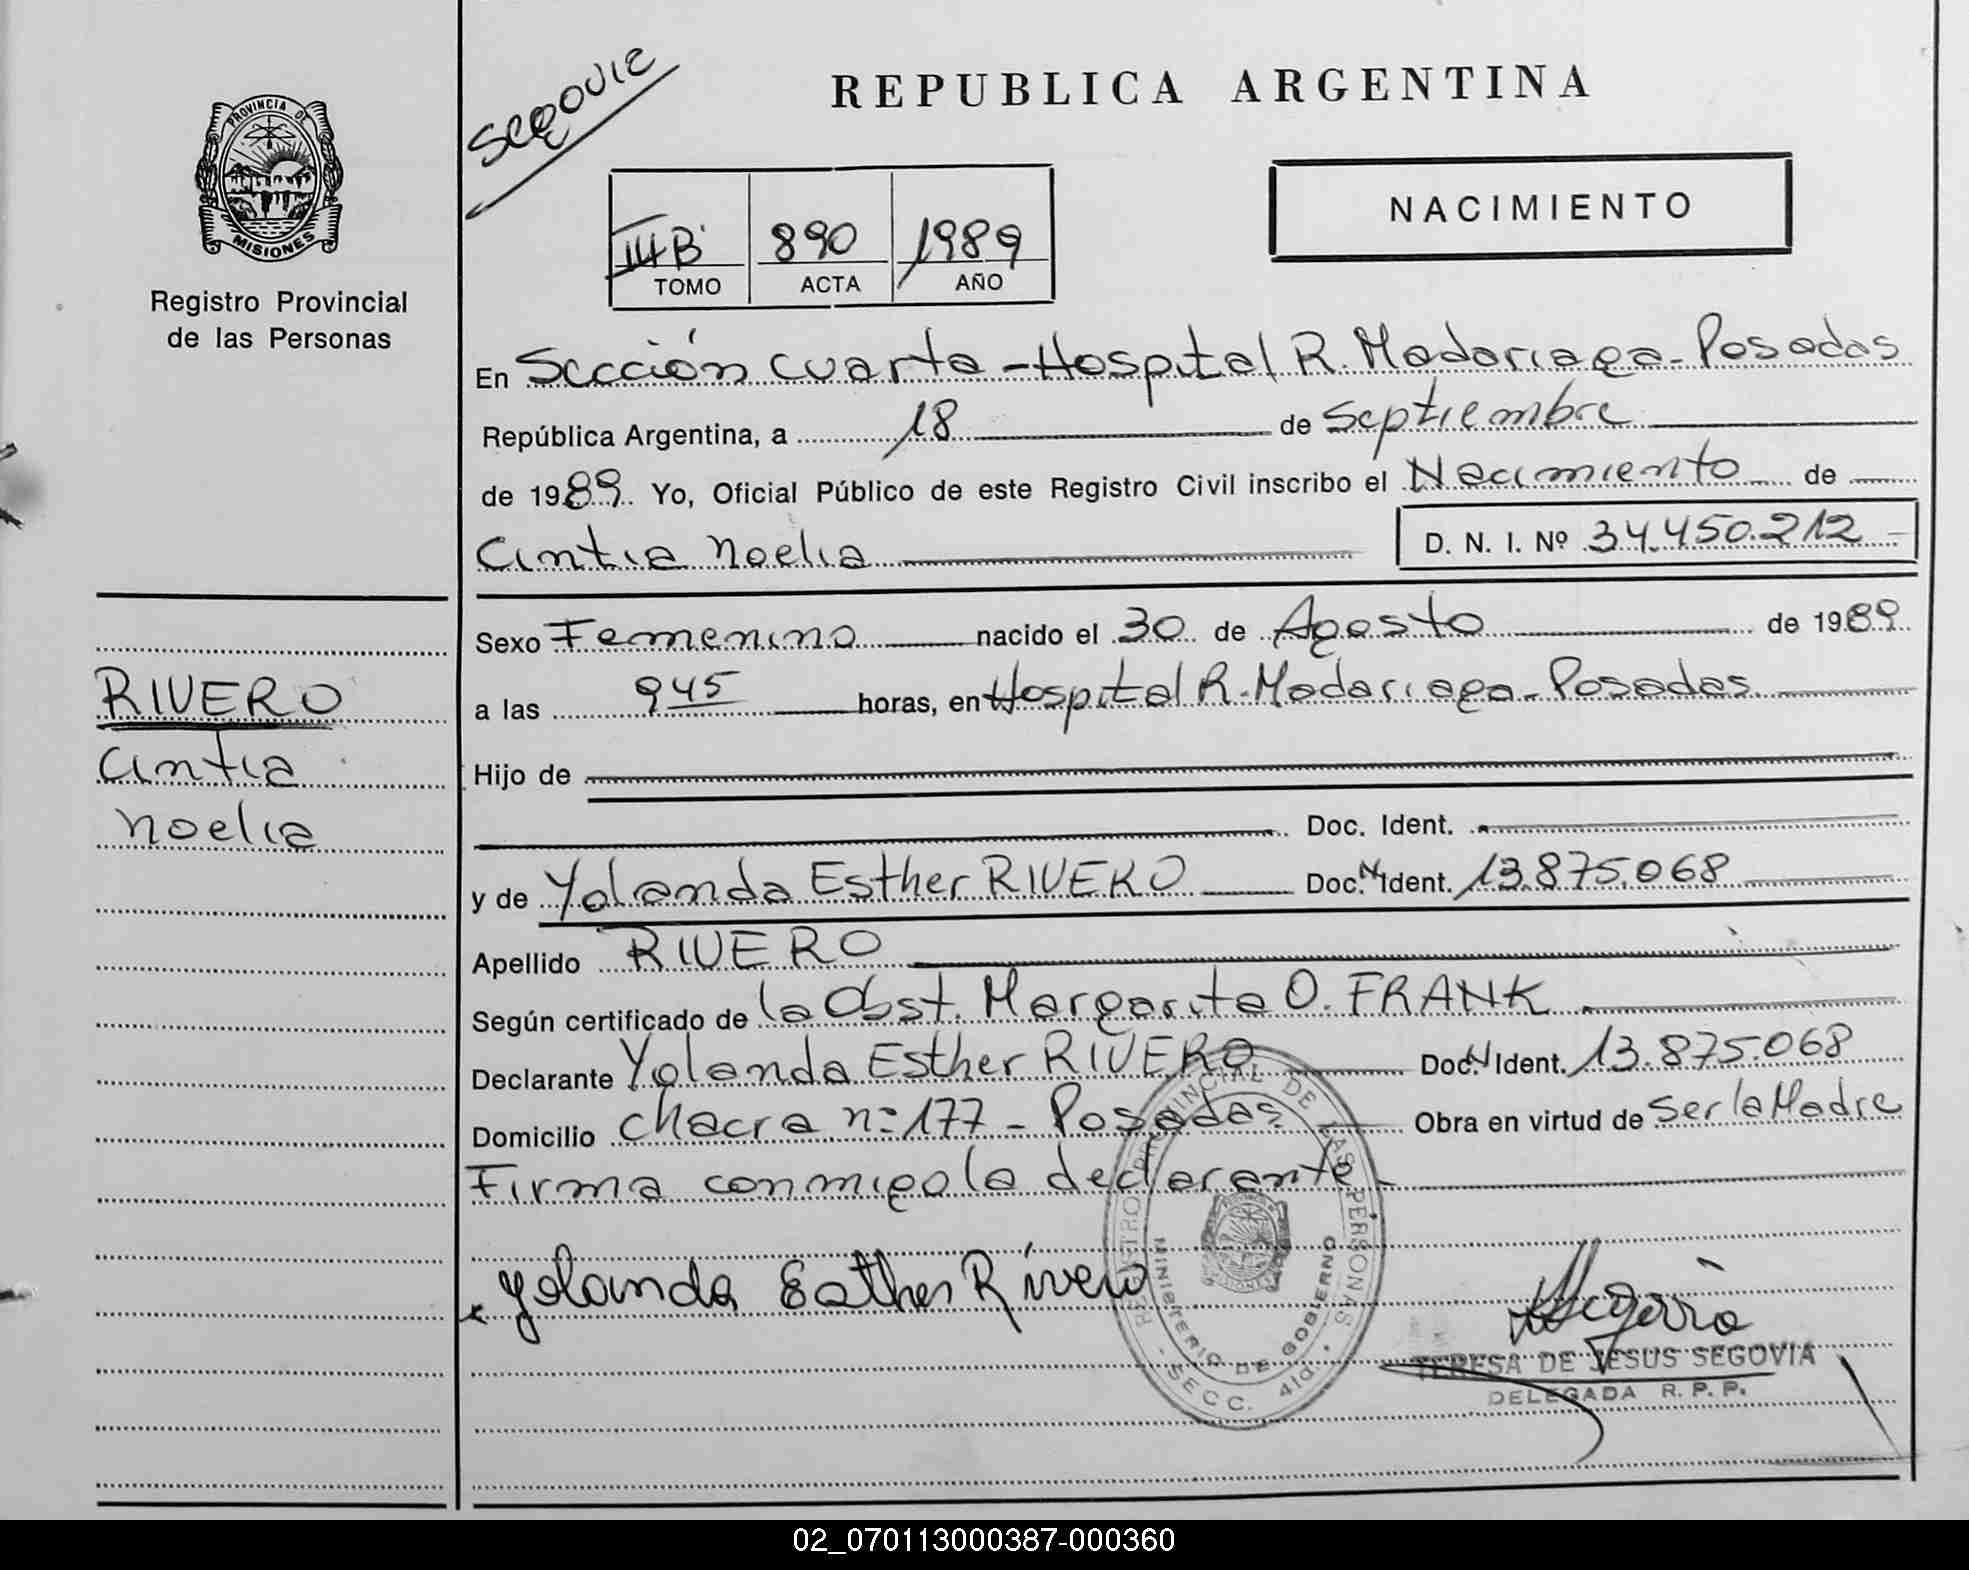 PROVINCIA DE
MISIONES
Registro Provincial
de las Personas
RIVERO
Cintia
Noelia
Segovia
REPUBLICA ARGENTINA
NACIMIENTO
III B 890 1989
TOMO ACTA AÑO
En Sección Cuarta - Hospital R. Madariaga - Posadas
República Argentina, a 18 de Septiembre
de 1989. Yo, Oficial Público de este Registro Civil inscribo el Nacimiento de
Cintia Noelia D. N. I. Nº 34.450.212
Sexo Femenino nacido el 30 de Agosto de 1989
a las 9 45 horas, en Hospital R. Madariaga - Posadas
Hijo de
Doc. Ident.
y de Yolanda Esther RIVERO Doc. N Ident. 13.875.068
Apellido RIVERO
Según certificado de la Obst. Margarita O. FRANK
Declarante Yolanda Esther RIVERO Doc. N Ident. 13.875.068
Domicilio Chacra nº 177 - Posadas Obra en virtud de Ser la Madre
Firma conmigo la declarante
Yolanda Esther Rivero
REGISTRO PROVINCIAL DE LAS PERSONAS
MINISTERIO DE GOBIERNO
- SECC. 4ta. -
Segovia
TERESA DE JESUS SEGOVIA
DELEGADA R. P. P.
02_070113000387-000360